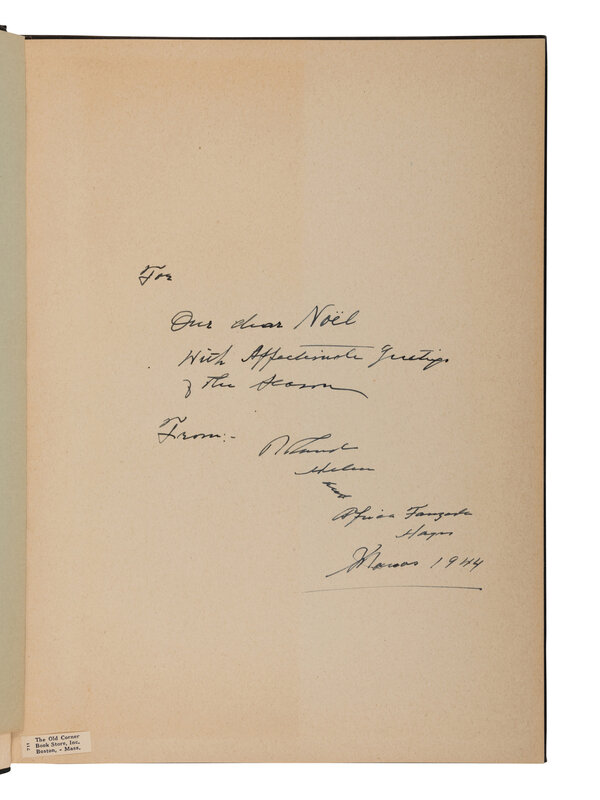 For
Our dear Noël
With Affectionate Greetings
of the Season
From:-
Roland
Helen
and
Africa Fanzada
Hayes
Xmas 1944
711
The Old Corner
Book Store, Inc.
Boston, - Mass.